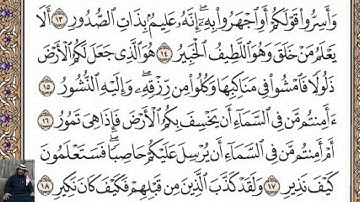 وَأَسِرُّوا۟ قَوْلَكُمْ أَوِ ٱجْهَرُوا۟ بِهِۦٓ ۖ إِنَّهُۥ عَلِيمٌۢ بِذَاتِ ٱلصُّدُورِ ١٣ أَلَا
يَعْلَمُ مَنْ خَلَقَ وَهُوَ ٱللَّطِيفُ ٱلْخَبِيرُ ١٤ هُوَ ٱلَّذِى جَعَلَ لَكُمُ ٱلْأَرْضَ
ذَلُولًا فَٱمْشُوا۟ فِى مَنَاكِبِهَا وَكُلُوا۟ مِن رِّزْقِهِۦ ۖ وَإِلَيْهِ ٱلنُّشُورُ ١٥
ءَأَمِنتُم مَّن فِى ٱلسَّمَآءِ أَن يَخْسِفَ بِكُمُ ٱلْأَرْضَ فَإِذَا هِىَ تَمُورُ ١٦
أَمْ أَمِنتُم مَّن فِى ٱلسَّمَآءِ أَن يُرْسِلَ عَلَيْكُمْ حَاصِبًا ۖ فَسَتَعْلَمُونَ
كَيْفَ نَذِيرِ ١٧ وَلَقَدْ كَذَّبَ ٱلَّذِينَ مِن قَبْلِهِمْ فَكَيْفَ كَانَ نَكِيرِ ١٨